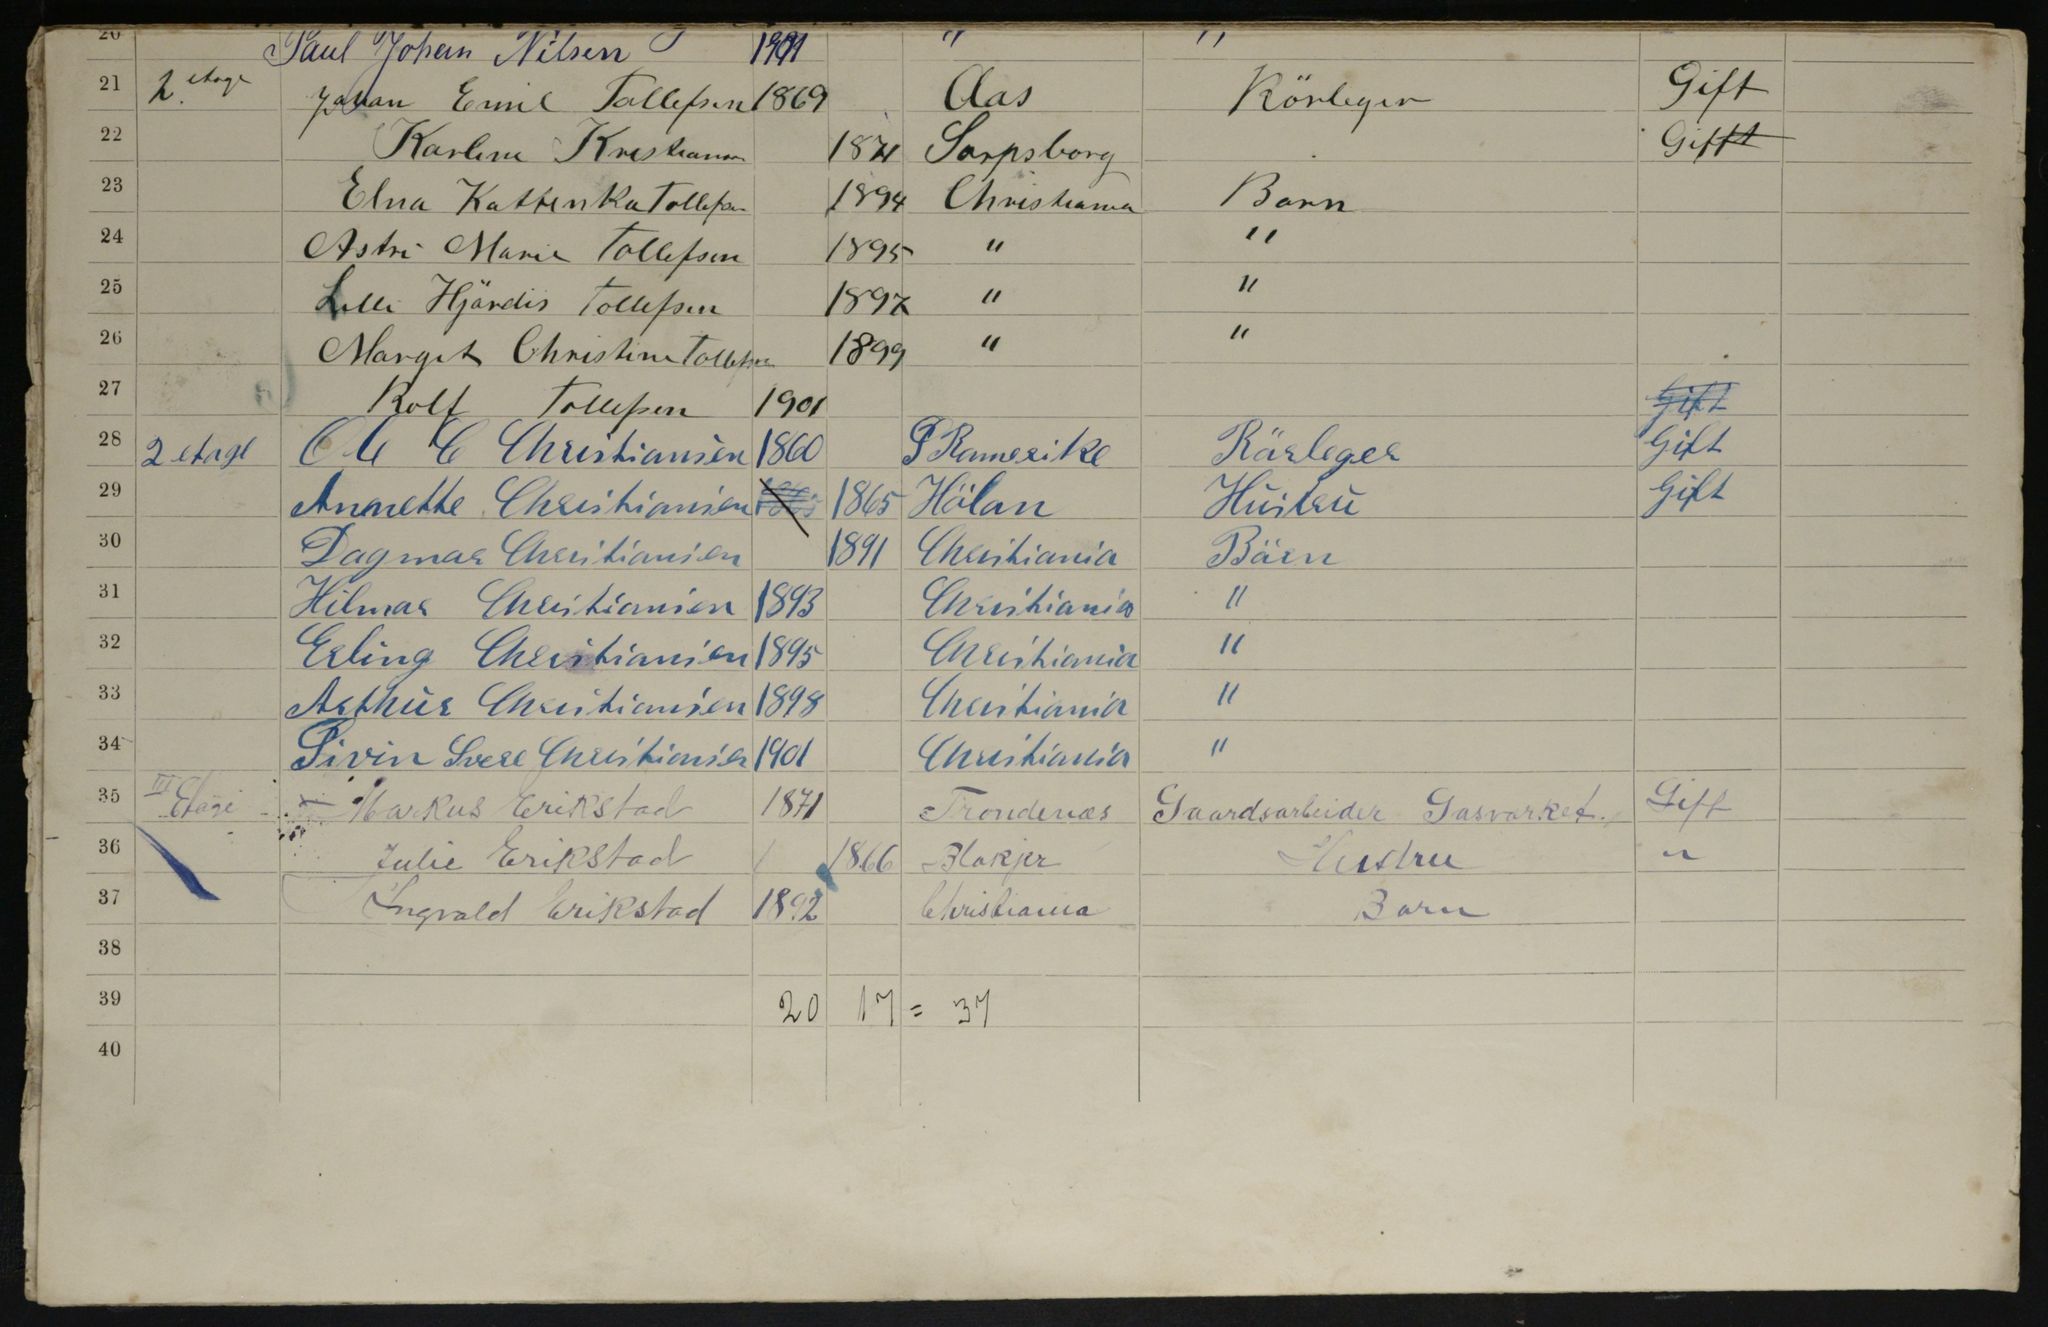 20 Paul Johan Nilsen 1901 " "
21 2 etage Johan Emil Tollefsen 1869 Aas Rörleger Gift
22 Karline Kristianne 1871 Sarpsborg Gift
23 Elna Kattinka Tollefsen 1894 Christiania Barn
24 Astri Marie Tollefsen 1895 " "
25 Lilli Hjördis Tollefsen 1897 " "
26 Margit Christine Tollefsen 1899 " "
27 Rolf Tollefsen 1901 Gift
28 2 etage Ole C Christiansen 1860 Ö Romerike Rörleger Gift
29 Annette Christiansen 1865 1865 Hölan Hustru Gift
30 Dagmar Christiansen 1891 Christiania Barn
31 Hilmar Christiansen 1893 Christiania "
32 Erling Christiansen 1895 Christiania "
33 Arthur Christiansen 1898 Christiania "
34 Sivin Sverre Christiansen 1901 Christiania "
35 III Etage Markus Erikstad 1871 Trondenæs Gaardsarbeider Gasværket. Gift
36 Julie Erikstad 1866 Blakjer Hustru "
37 Ingvald Erikstad 1892 Christiania Barn
38
39 20 17 = 37
40